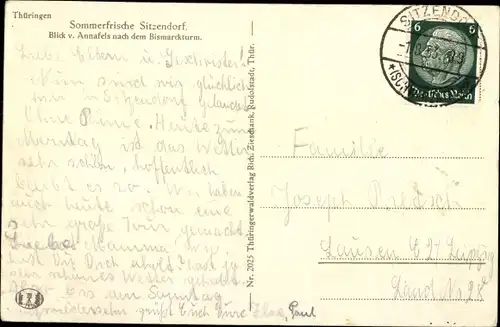 Thüringen
Sommerfrische Sitzendorf.
Blick v. Annafels nach dem Bismarckturm.
Liebe Eltern u. Geschwister!
Nun sind wir glücklich
in Sitzendorf gelandet
Ohne Panne. Heute zum
Montag ist das Wetter
sehr schön, hoffentlich
bleibt es so. Wir haben
auch heute schon eine
sehr große Tour gemacht
Liebe Mamma wie
hast Du Dich erholt? hast ja
sehr schönes Wetter gehabt.
Aber bis den Sonntag
grüßt Euch Eure Elsa, Paul
Nr. 2025 Thüringerwaldverlag Rich. Zieschank, Rudolstadt, Thür.
SITZENDORF
6 6
Deutsches Reich
Familie
Joseph
Lausen C 27 Leipzig